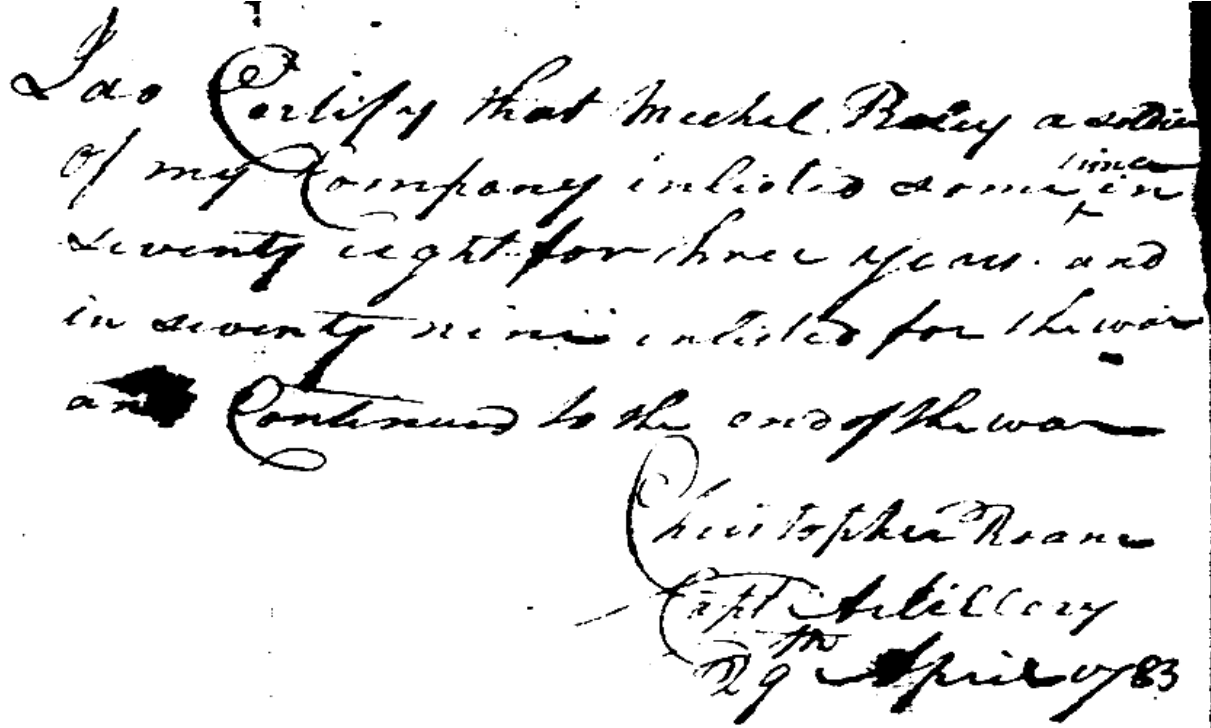 I do Certify that Mechel Roley a soldier
of my Company inlisted some time in
seventy eight for three years. and
in seventy nine enlisted for the war
and Continued to the end of the war
Christopher Roane
Capt Artillery
29th April 1783